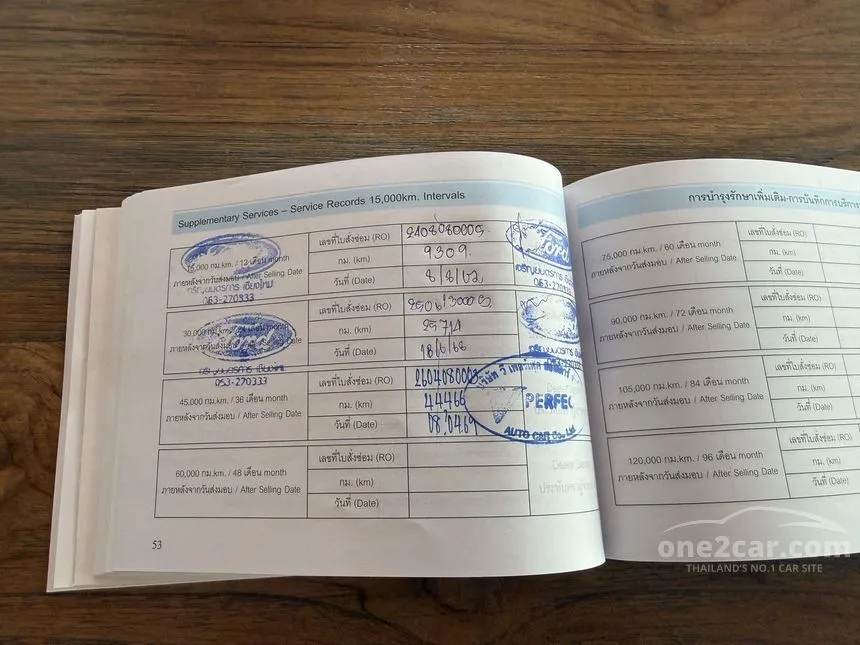 Supplementary Services – Service Records 15,000km. Intervals
15,000 กม.km. / 12 เดือน month
ภายหลังจากวันส่งมอบ / After Selling Date
เลขที่ใบสั่งซ่อม (RO)
กม. (km) 9309
วันที่ (Date)
Ford
053-270333
30,000 กม.km.
ภายหลังจากวันส่งมอบ / After Selling Date
เลขที่ใบสั่งซ่อม (RO)
กม. (km)
วันที่ (Date)
Ford
053-270333
45,000 กม.km. / 36 เดือน month
ภายหลังจากวันส่งมอบ / After Selling Date
เลขที่ใบสั่งซ่อม (RO)
กม. (km) 44466
วันที่ (Date) 08.04.69
PERFEC
AUTO
60,000 กม.km. / 48 เดือน month
ภายหลังจากวันส่งมอบ / After Selling Date
เลขที่ใบสั่งซ่อม (RO)
กม. (km)
วันที่ (Date)
53
การบำรุงรักษาเพิ่มเติม-การบันทึกการบริการ
75,000 กม.km. / 60 เดือน month
ภายหลังจากวันส่งมอบ / After Selling Date
เลขที่ใบสั่งซ่อม (RO)
กม. (km)
วันที่ (Date)
90,000 กม.km. / 72 เดือน month
ภายหลังจากวันส่งมอบ / After Selling Date
เลขที่ใบสั่งซ่อม (RO)
กม. (km)
วันที่ (Date)
105,000 กม.km. / 84 เดือน month
ภายหลังจากวันส่งมอบ / After Selling Date
เลขที่ใบสั่งซ่อม (RO)
กม. (km)
วันที่ (Date)
120,000 กม.km. / 96 เดือน month
ภายหลังจากวันส่งมอบ / After Selling Date
เลขที่ใบสั่งซ่อม (RO)
กม. (km)
วันที่ (Date)
one2car.com
THAILAND'S NO.1 CAR SITE